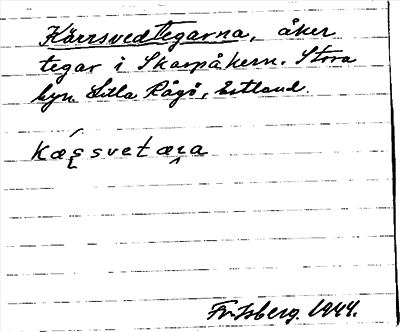 Kärrsvedtegarna, åker
tegar i Skarpåkern. Stora
byn. Lilla Rågö, Estland.
kǽʂsvetæɽa
Fr. Isberg. 1944.